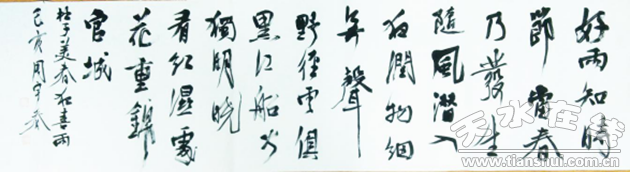 好雨知時
節當春
乃發生
隨風潛入
夜潤物細
無聲
野徑雲俱
黑江船火
獨明曉
看紅濕處
花重錦
官城
杜子美春夜喜雨
己亥周宇春
天水在线
www.tianshui.com.cn